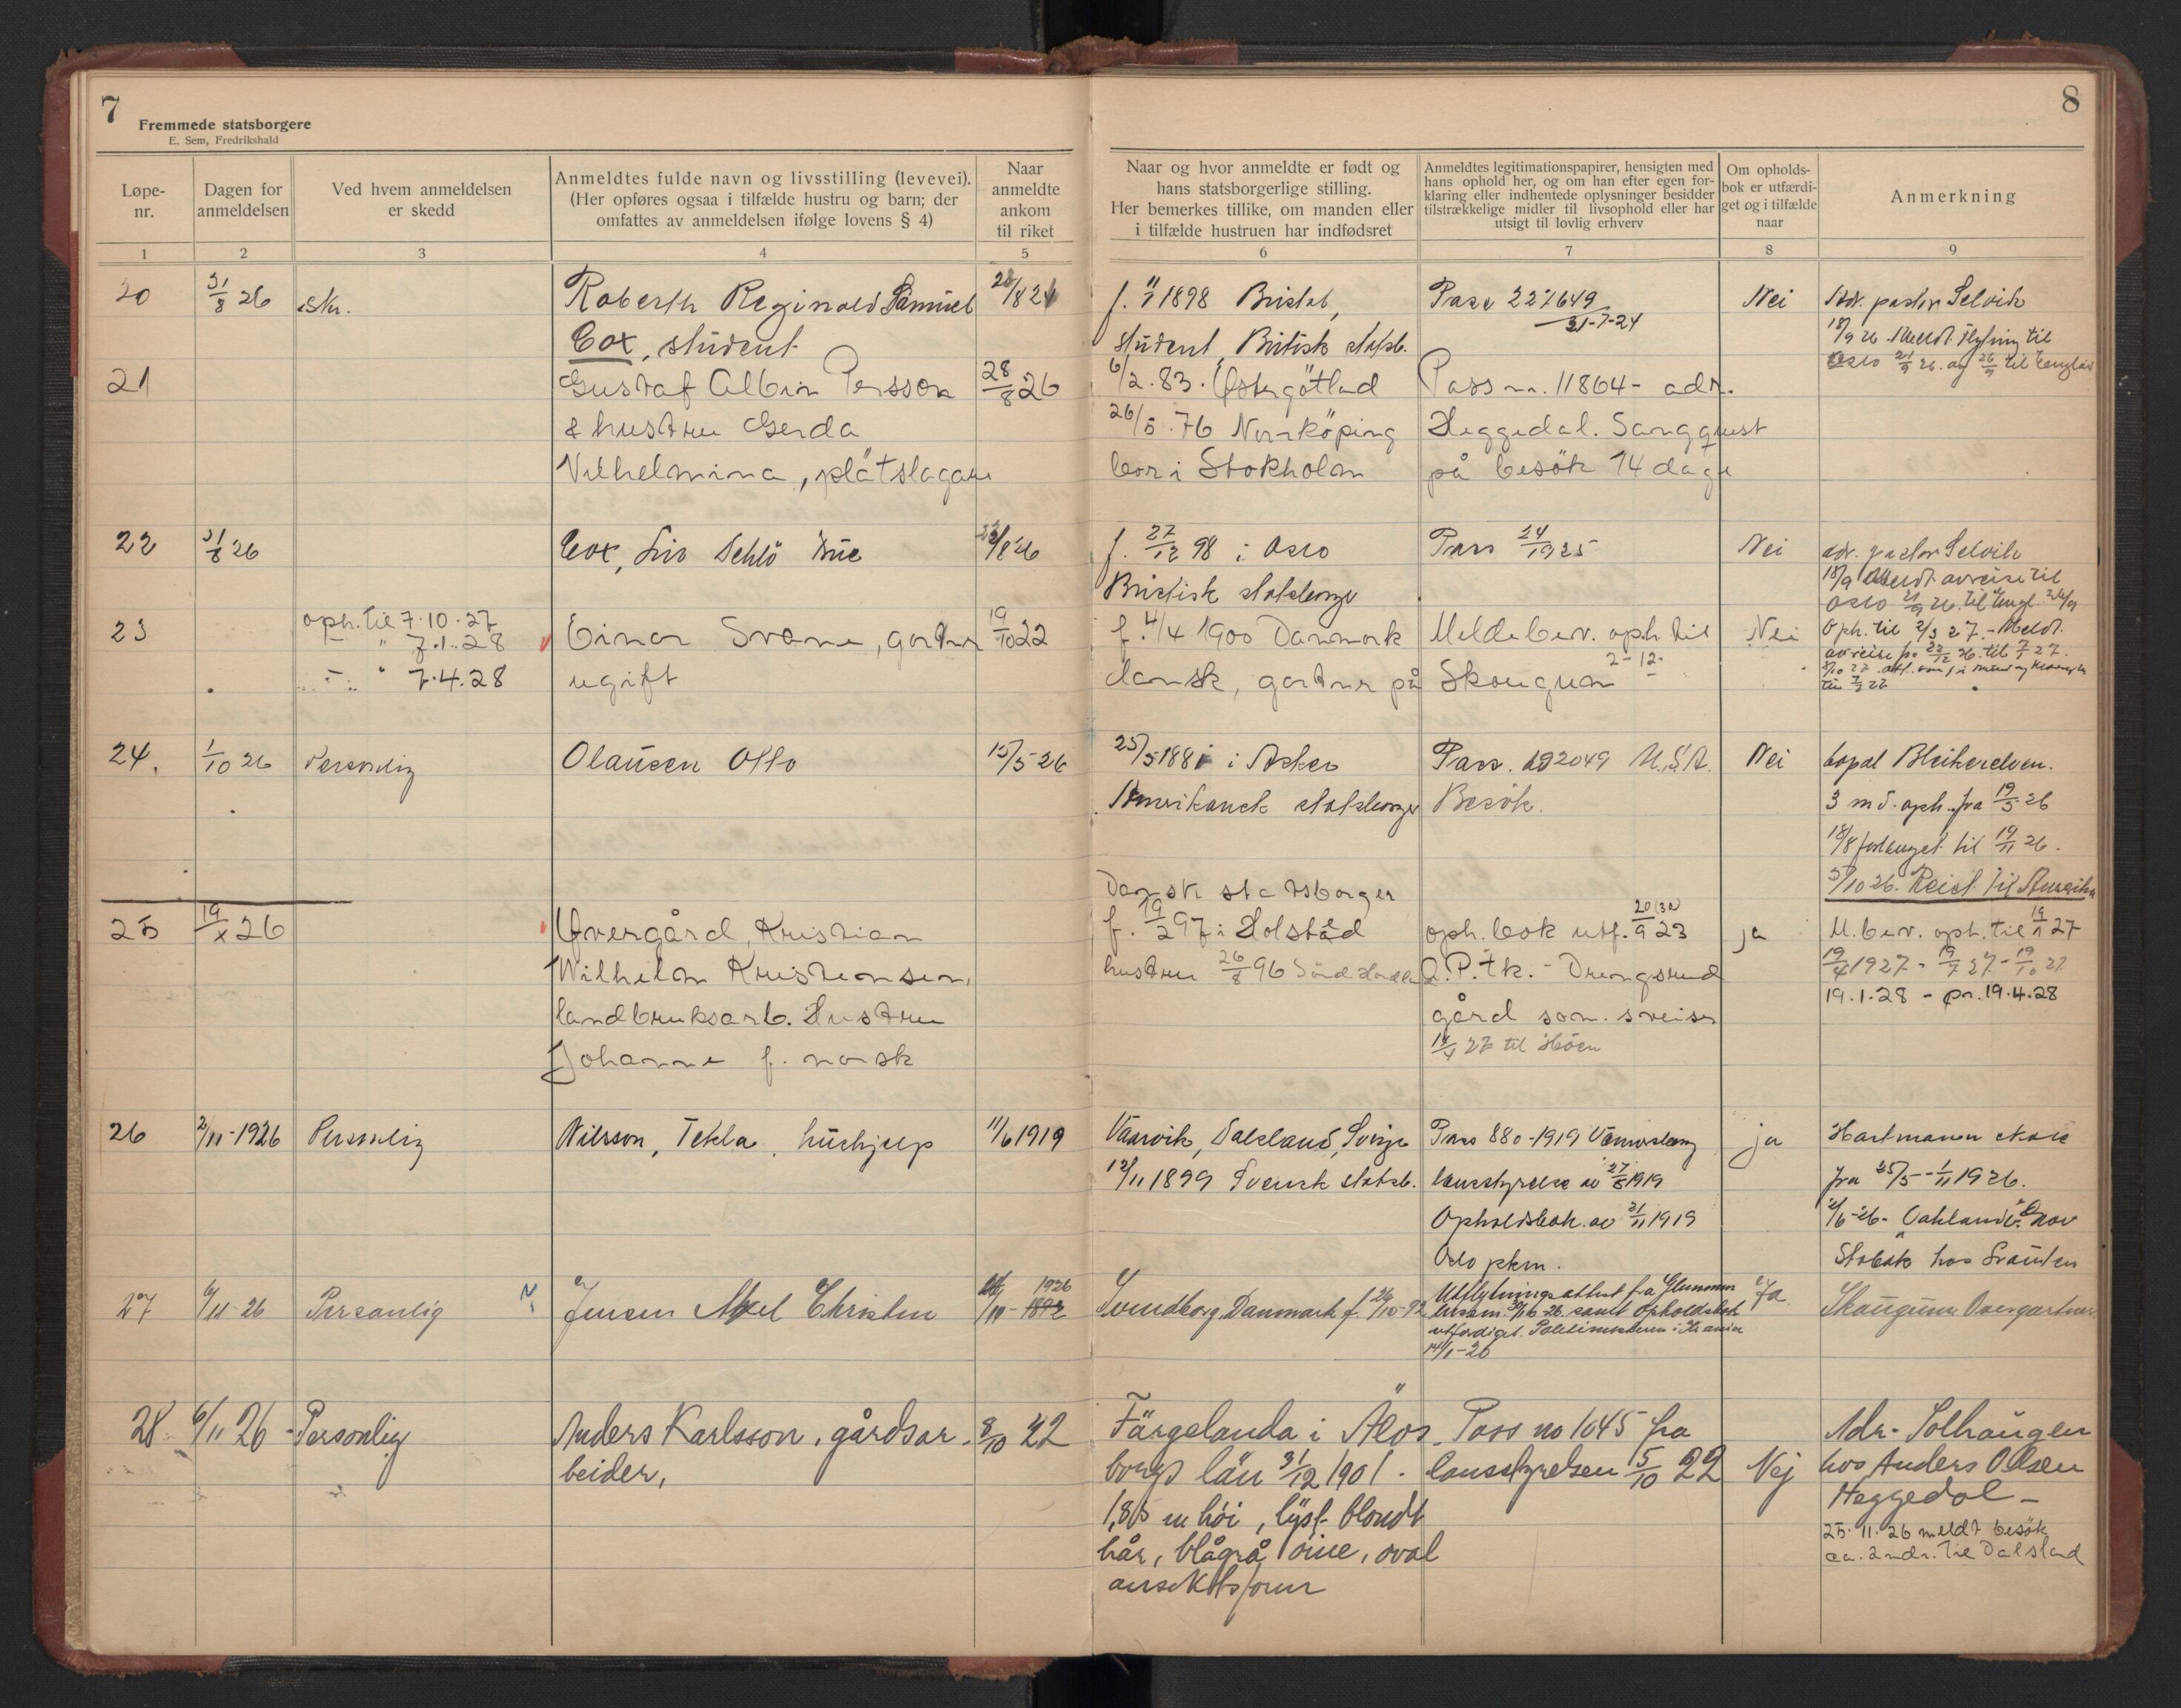 7
Fremmede statsborgere
E. Sem, Fredrikshald
Løpe-nr.
Dagen for anmeldelsen
Ved hvem anmeldelsen er skedd
Anmeldtes fulde navn og livsstilling (levevei).
(Her opføres ogsaa i tilfælde hustru og barn; der
omfattes av anmeldelsen ifølge lovens § 4)
Naar anmeldte ankom til riket
1 2 3 4 5
8
Naar og hvor anmeldte er født og
hans statsborgerlige stilling.
Her bemerkes tillike, om manden eller
i tilfælde hustruen har indfødsret
Anmeldtes legitimationspapirer, hensigten med
hans ophold her, og om han efter egen for-
klaring eller indhentede oplysninger besidder
tilstrækkelige midler til livsophold eller har
utsigt til lovlig erhverv
Om opholds-
bok er utfærdi-
get og i tilfælde
naar
Anmerkning
6 7 8 9
20 31/8 26 Skr. Roberth Reginald Samuel
Cox, student
f. 1898 Bristol,
student, Britisk statsb.
Pass 227649
31-7-24
Nei
Adr. pastor Selvik
18/9 26 Meldt flytning til
Oslo 21/9 26. og 26/9 til England
21 Gustaf Albin Persson 28/8 26
& hustru Gerda
Vilhelmina, plåtslagare
6/2.83. Østergötland
26/5.76 Norrköping
bor i Stokholm
Pass nr. 11864 - adr.
Heggedal. Sangquist
på besök 14 dage
22 31/8 26 Cox, Liv Dehlö
f. 27/12 98 i Oslo
Britisk statsborger
Pass
Nei
adr. pastor Selvik
18/9 Meldt avreise til
Oslo 21/9 26. til Engl.
23 oph. til 7.10.27
— " 7.1.28
— " 7.4.28
Einar Svane, gartner 19/10 22
ugift
f. 4/4 1900 Danmark
dansk, gartner på
Meldebev. oph. til
2-12-
Skaugum
Nei
Oph. til 2/3 27. - Meldt
avreise pr 22/12 26. til 7/1 27.
24. 1/10 26 Personlig Olausen Otto 15/5-26
25/5 1881 i Asker
Amerikansk statsborger
Pass. 192049 U.S.A.
Besök.
Nei
bopæl Bleikerelven.
3 md. oph. fra 19/5 26
18/8 forlænget til 19/11 26.
5/10 26. Reist til Amerika
25 19/x 26 Øvergård, Kristian
Wilhelm Kristiansen,
landbruksarb. Hustru
Johanne f. norsk
Dansk statsborger
f. 19/2 97 i Holsted
hustru 26/8 96
oph. bok utf. 20/9 23
Ø.P.tk. - Drengsrud
gård som sveiser
27 til Höen
ja
M. bev. oph. til 19/1 27
19/4 1927 - 19/7 27 - 19/10 27
19.1.28 - pr. 19.4.28
26 2/11-1926 Personlig Nilsson, Tekla, hushjelp 11/6 1919
Vaarvik, Dalsland, Sverige
12/11 1899 Svensk statsb.
Pass 880-1919 Vänersborg
lansstyrelse av 27/5 1919
Opholdsbok av 21/11 1919
Oslo pkm.
ja
Hartmann
fra 25/5 - 1/11 1926.
Stabæk hos
27 6/11-26 Personlig Jensen Axel Christen 1926
Svendborg, Danmark f. 26/10-92
Utflytningsattest fra Glemmen
samt Opholdsbok
utfærdiget. Politimesteren i Krania
14/1-26
Ja.
Skaugum Overgartner.
28 6/11 26 - Personlig Anders Karlsson, gårdsar- 8/10 22
beider,
Färgelanda i Älvs-
borgs län 31/12 1901.
1,85 m høi, lyst blondt
hår, blågrå öine, oval
ansiktsform
Pass no 1045 fra
lansstyrelsen 5/10 22
Nej
Adr. Solhaugen
hos Anders Olsen
Heggedal -
25.11.26 meldt besök
ca. 2 mdr. til Dalsland